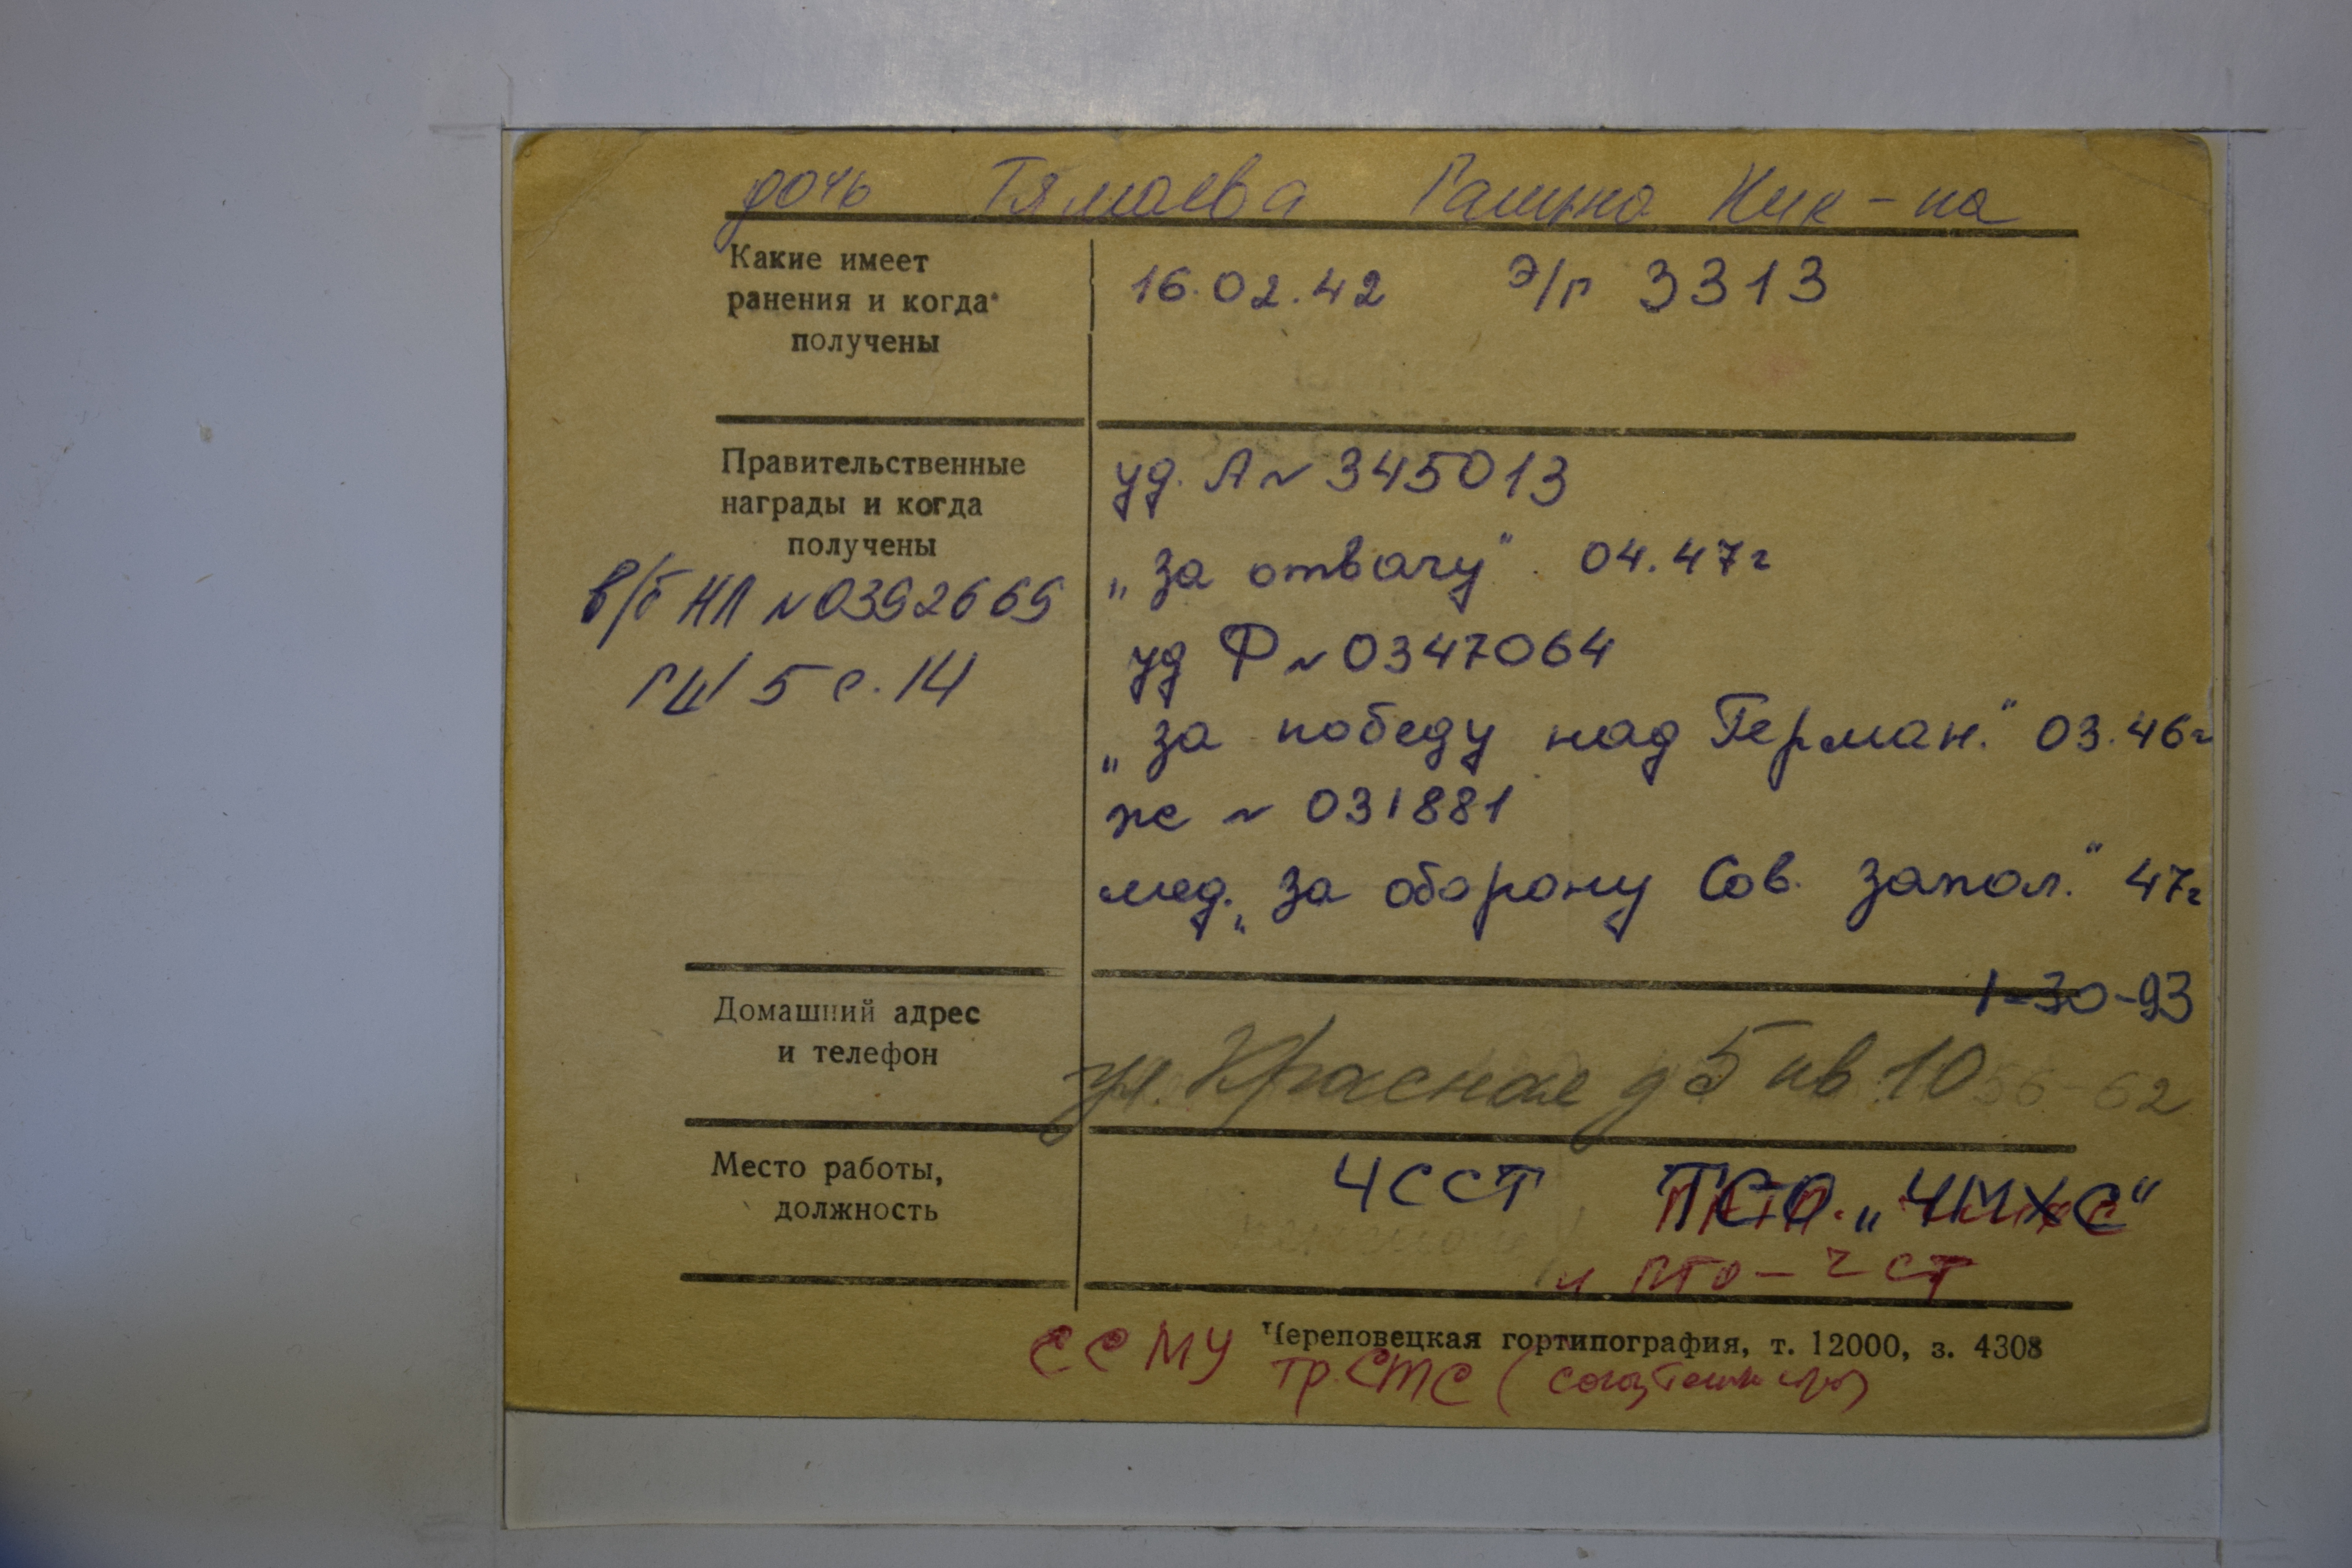 дочь Тямаева Галина Ник-на
Какие имеет
ранения и когда
получены
16.02.42 э/г 3313
Правительственные
награды и когда
получены
в/б НЛ №0392669
ГШ 5 с. 14
уд. А № 345013
„за отвагу" 04.47г
уд Ф № 0347064
„за победу над Герман." 03.46г
ж № 031881
мед. „за оборону Сов. запол." 47г
Домашний адрес
и телефон
1-30-93
ул. Красная д 5 кв 10 56-62
Место работы,
должность
ЧССТ ТСО „ЧМХС"
и ПТО-ЧСТ
Череповецкая гортипография, т. 12000, з. 4308
ССМУ
тр. СТС